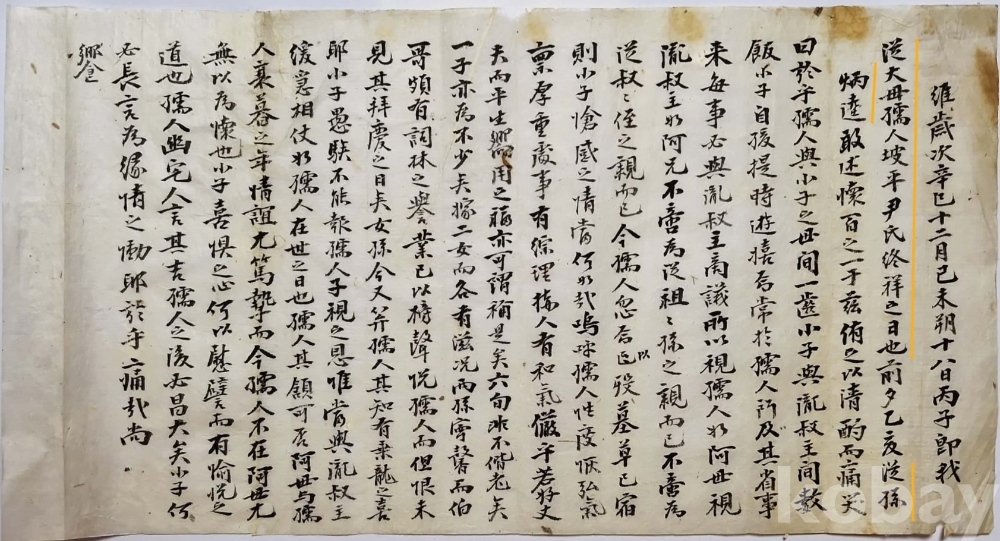 維歲次辛巳十二月己未朔十八日丙子卽我
從大母孺人坡平尹氏終祥之日也前夕乙亥從孫
炳逵敢述懷百之一于玆侑之以清酌而痛哭
曰於乎孺人與小子之母間一齒小子與胤叔主間數
飯小子自孩提時遊嬉居常於孺人所及其省事
來每事必與胤叔主商議所以視孺人如阿母視
胤叔主如阿兄不啻為從祖〻孫之親而已不啻為
從叔〻侄之親而已今孺人忽焉以殁墓草已宿
則小子愴感之情當何如哉嗚呼孺人性度恢弘氣
稟厚重處事有綜理接人有和氣儼乎若好丈
夫而平生用之福亦可謂稱是矣六旬非不偕老矣
一子亦為不少矣嫁二女而各有滋況而孫馨而伯
哥頗有詞林之譽業已以榜聲悅孺人而但恨未
見其拜慶之日矣女孫今又笄孺人其知有乘龍之喜
耶小子愚騃不能報孺人子視之恩唯當與胤叔主
緩急相仗如孺人在世之日也孺人其領可否阿母與孺
人衰暮之年情誼尤篤摯而今孺人不在阿母尤
無以為懷也小子喜懼之心何以慰譬而有愉悅之
道也孺人幽宅人言其吉孺人之後必昌大矣小子何
必長言為緣情之慟耶於乎痛哉尚
饗
kobay